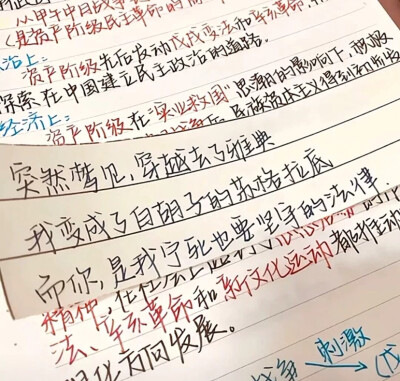 从甲午中日战争
(是资产阶级民主革命的
治上:
资产阶级先后发动戊戌变法和辛亥革命,
探索在中国建立民主政治的道路。
经济上:
资产阶级在"实业救国"思潮的影响下
民族资本主义得到
突然梦见,穿越去了雅典
我变成了白胡子的苏格拉底
而你,是我宁死也要坚守的法律.
精神,
法、辛亥革命和新文化运动都推动
化方向发展。
战争
刺激